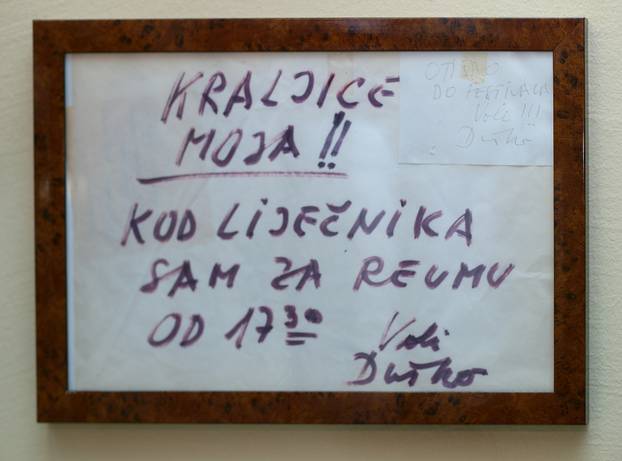 KRALJICE
MOJA!!
KOD LIJEČNIKA
SAM ZA REUMU
OD 17 30
Voli
Duško
DO
Voli !!!
Duško